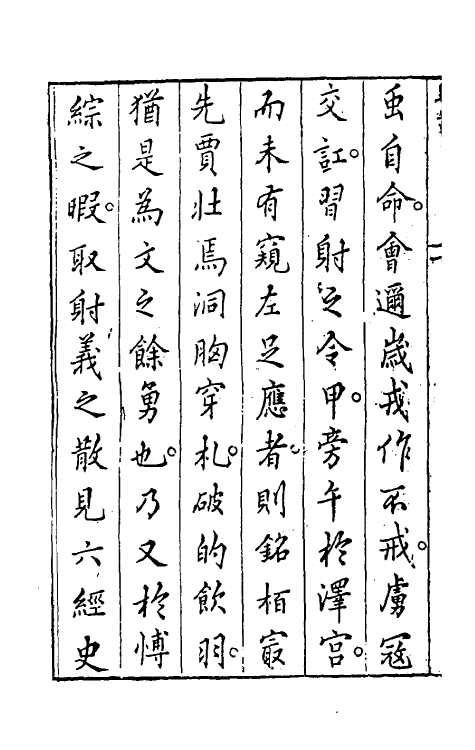 自命。會邇歲戎作不戒。虜冦
交訌。習射之令甲。旁午於澤宫。
而未有窺左足應者。則銘栢㝡
先賈壯焉洞胸穿札。破的飲羽。
猶是為文之餘勇也。乃又於愽
綜之暇。取射義之散見六經史